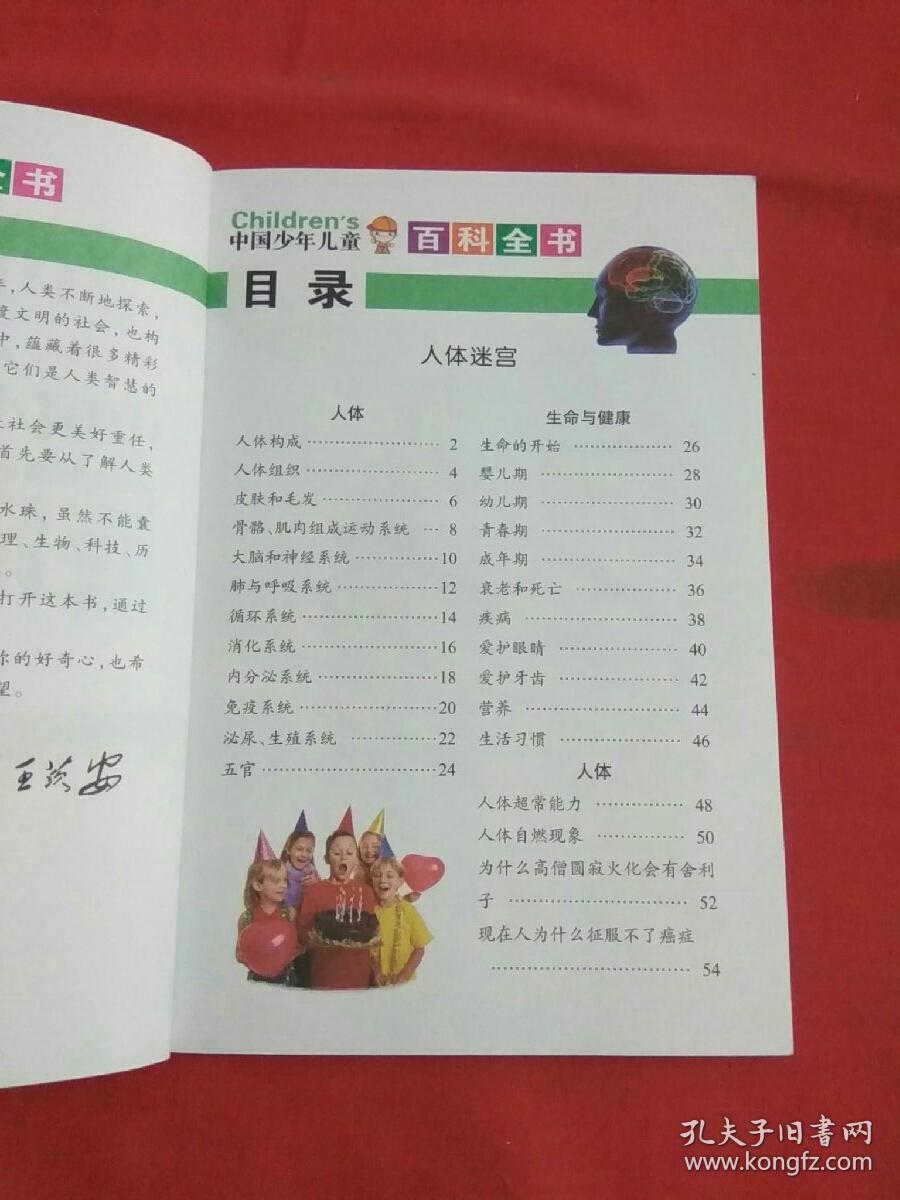 全书
年,人类不断地探索,
度文明的社会,也构
中,蕴藏着很多精彩
它们是人类智慧的
社会更美好重任,
首先要从了解人类
水珠,虽然不能囊
理、生物、科技、历
。
打开这本书,通过
你的好奇心,也希
望。
Children's
中国少年儿童
百科全书
目录
人体迷宫
人体
人体构成 ………… 2
人体组织 ………… 4
皮肤和毛发 ………… 6
骨骼、肌肉组成运动系统 … 8
大脑和神经系统 ………… 10
肺与呼吸系统 ………… 12
循环系统 ………… 14
消化系统 ………… 16
内分泌系统 ………… 18
免疫系统 ………… 20
泌尿、生殖系统 ………… 22
五官 ………… 24
生命与健康
生命的开始 ………… 26
婴儿期 ………… 28
幼儿期 ………… 30
青春期 ………… 32
成年期 ………… 34
衰老和死亡 ………… 36
疾病 ………… 38
爱护眼睛 ………… 40
爱护牙齿 ………… 42
营养 ………… 44
生活习惯 ………… 46
人体
人体超常能力 ………… 48
人体自燃现象 ………… 50
为什么高僧圆寂火化会有舍利
子 ………… 52
现在人为什么征服不了癌症
………… 54
孔夫子旧书网
www.kongfz.com